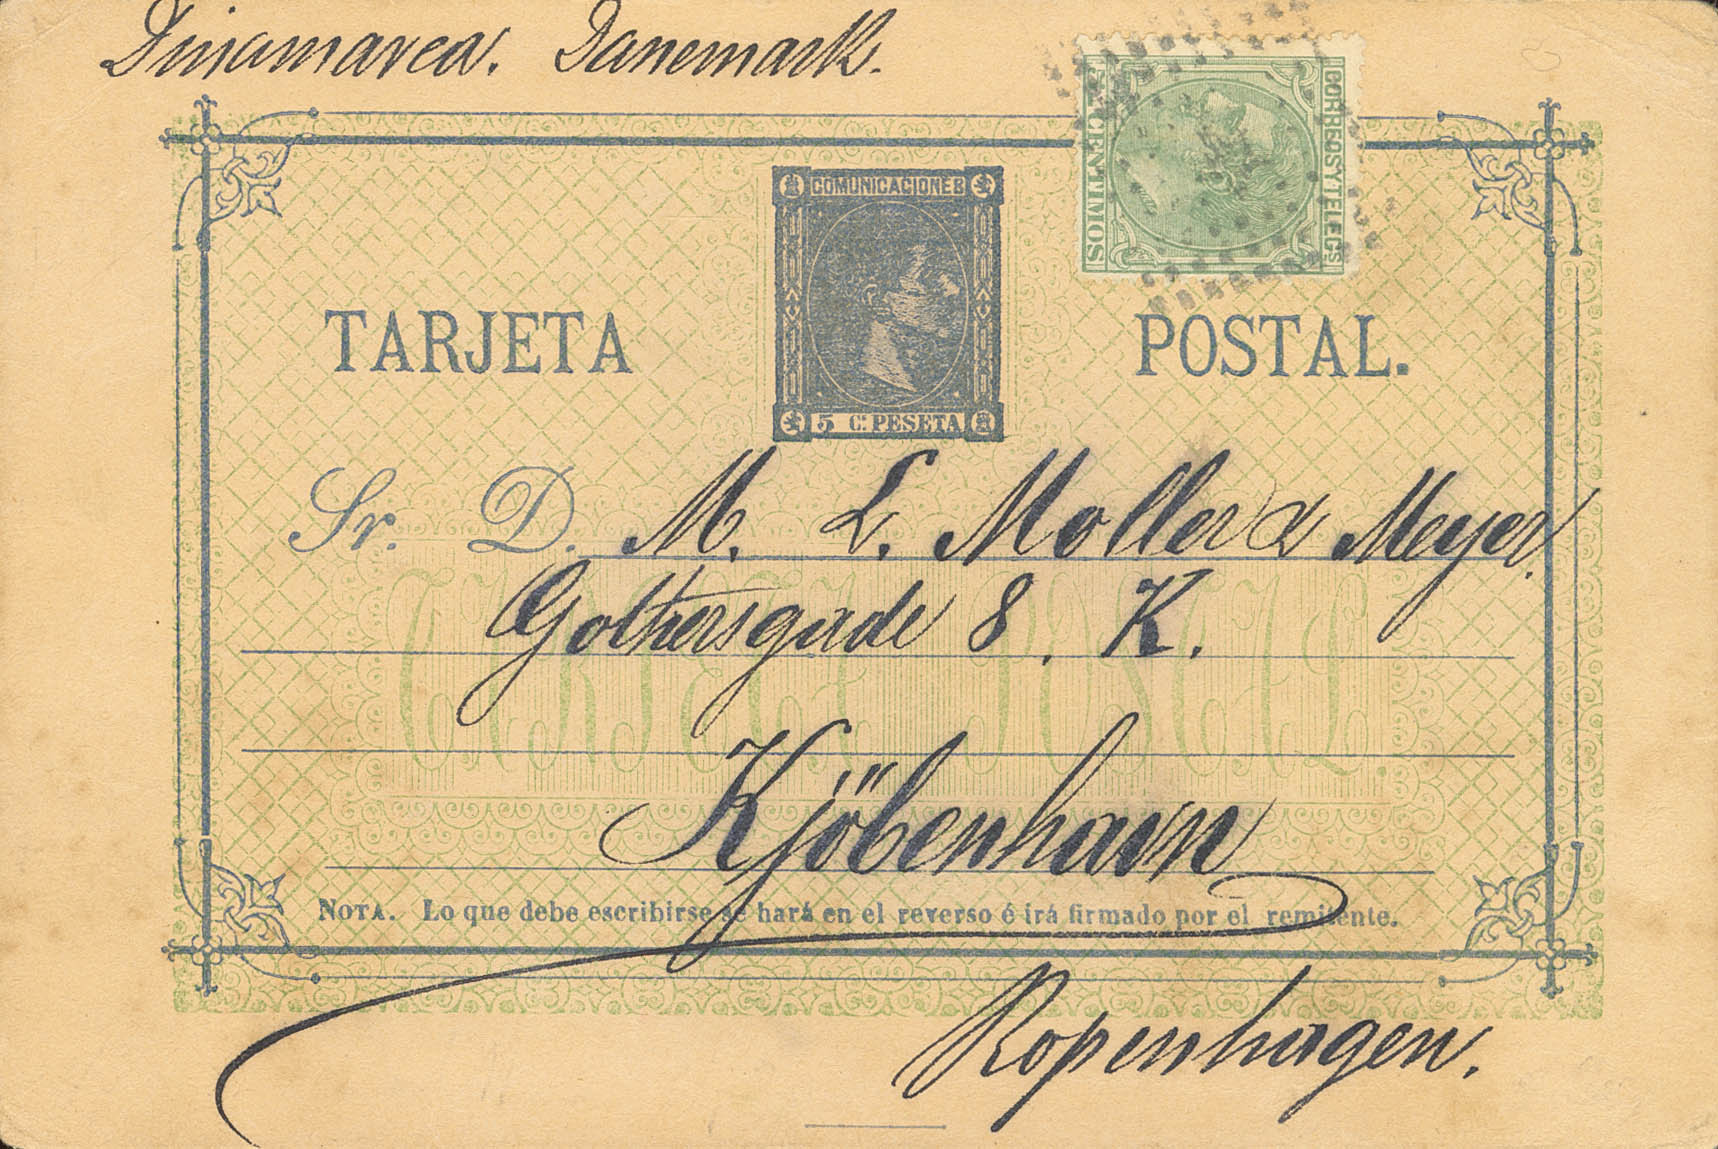 Dinamarca. Danemark.
CORREOS Y TELEGS
5 CENTIMOS
COMUNICACIONES
TARJETA POSTAL.
5 CS PESETA
Sr. D. M. L. Moller & Meyer.
Gothersgade 8. K.
TARJETA POSTAL
Kjöbenhavn
NOTA. Lo que debe escribirse se hará en el reverso é irá firmado por el remitente.
Kopenhagen.